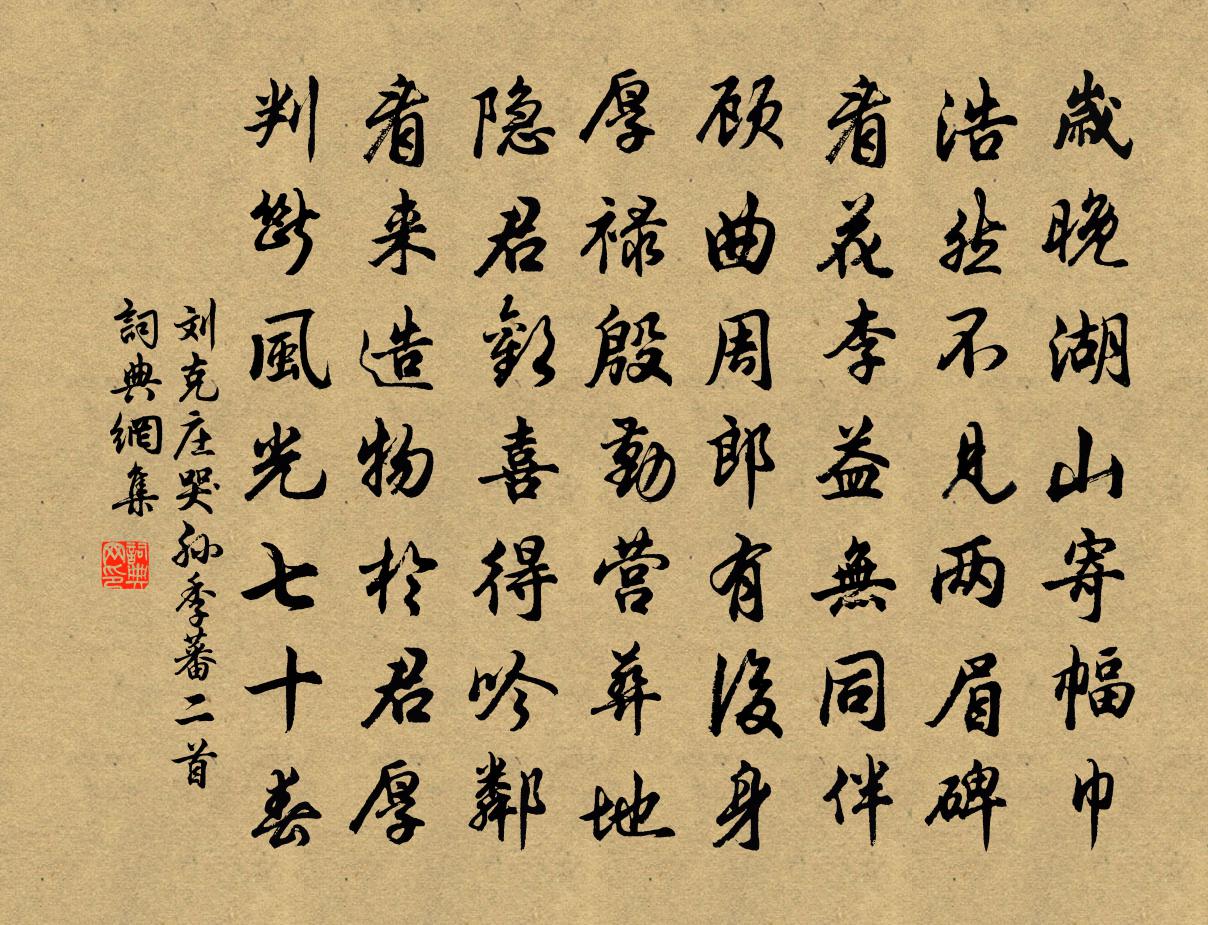 歲晚湖山寄幅巾
浩然不見两眉碑
看花李益無同伴
顾曲周郎有後身
厚禄殷勤营葬地
隐君歡喜得吟鄰
看来造物於君厚
判斷風光七十春
刘克庄哭孙季蕃二首
詞典網集
詞典網印